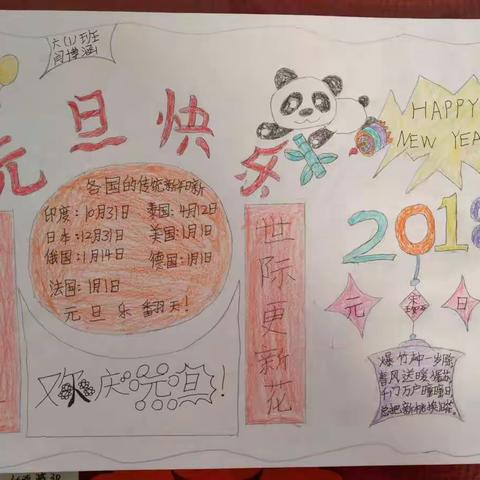 六(1)班
闫博涵
元旦快乐
HAPPY
NEW YEA
2018
各国的传统新年
印度:10月31日 泰国:4月12日
日本:12月31日 美国:1月1日
俄国:1月14日 德国:1月1日
法国:1月1日
元旦乐翻天!
欢庆元旦!
世际更新花
元 日
爆竹种一岁除
春风送暖
千门万户瞳瞳日
总把新桃换旧